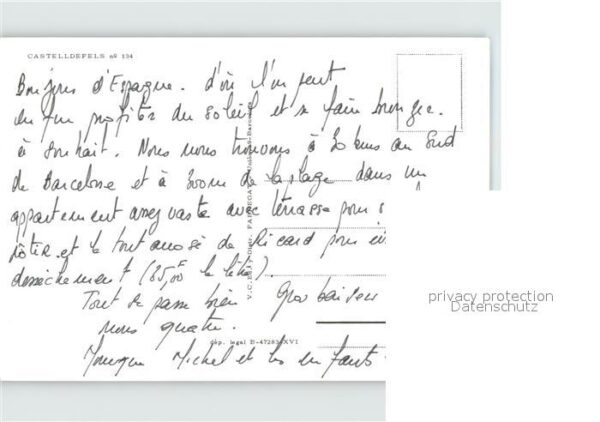 CASTELLDEFELS nº 134
Bonjour d'Espagne. d'où l'on peut
enfin profiter du soleil et se faire bronzer
à souhait. Nous nous trouvons à 20 kms au Sud
de Barcelone et à 300m de la plage dans un
appartement assez vaste avec terrasse pour
rôtir et le tout arrosé de Ricard pour
dessèchement (85,00F le litre).
Tout se passe bien Gros baisers
nous quatre.
Michel et les enfants
dép. legal B-47283-XVI
privacy protection
Datenschutz